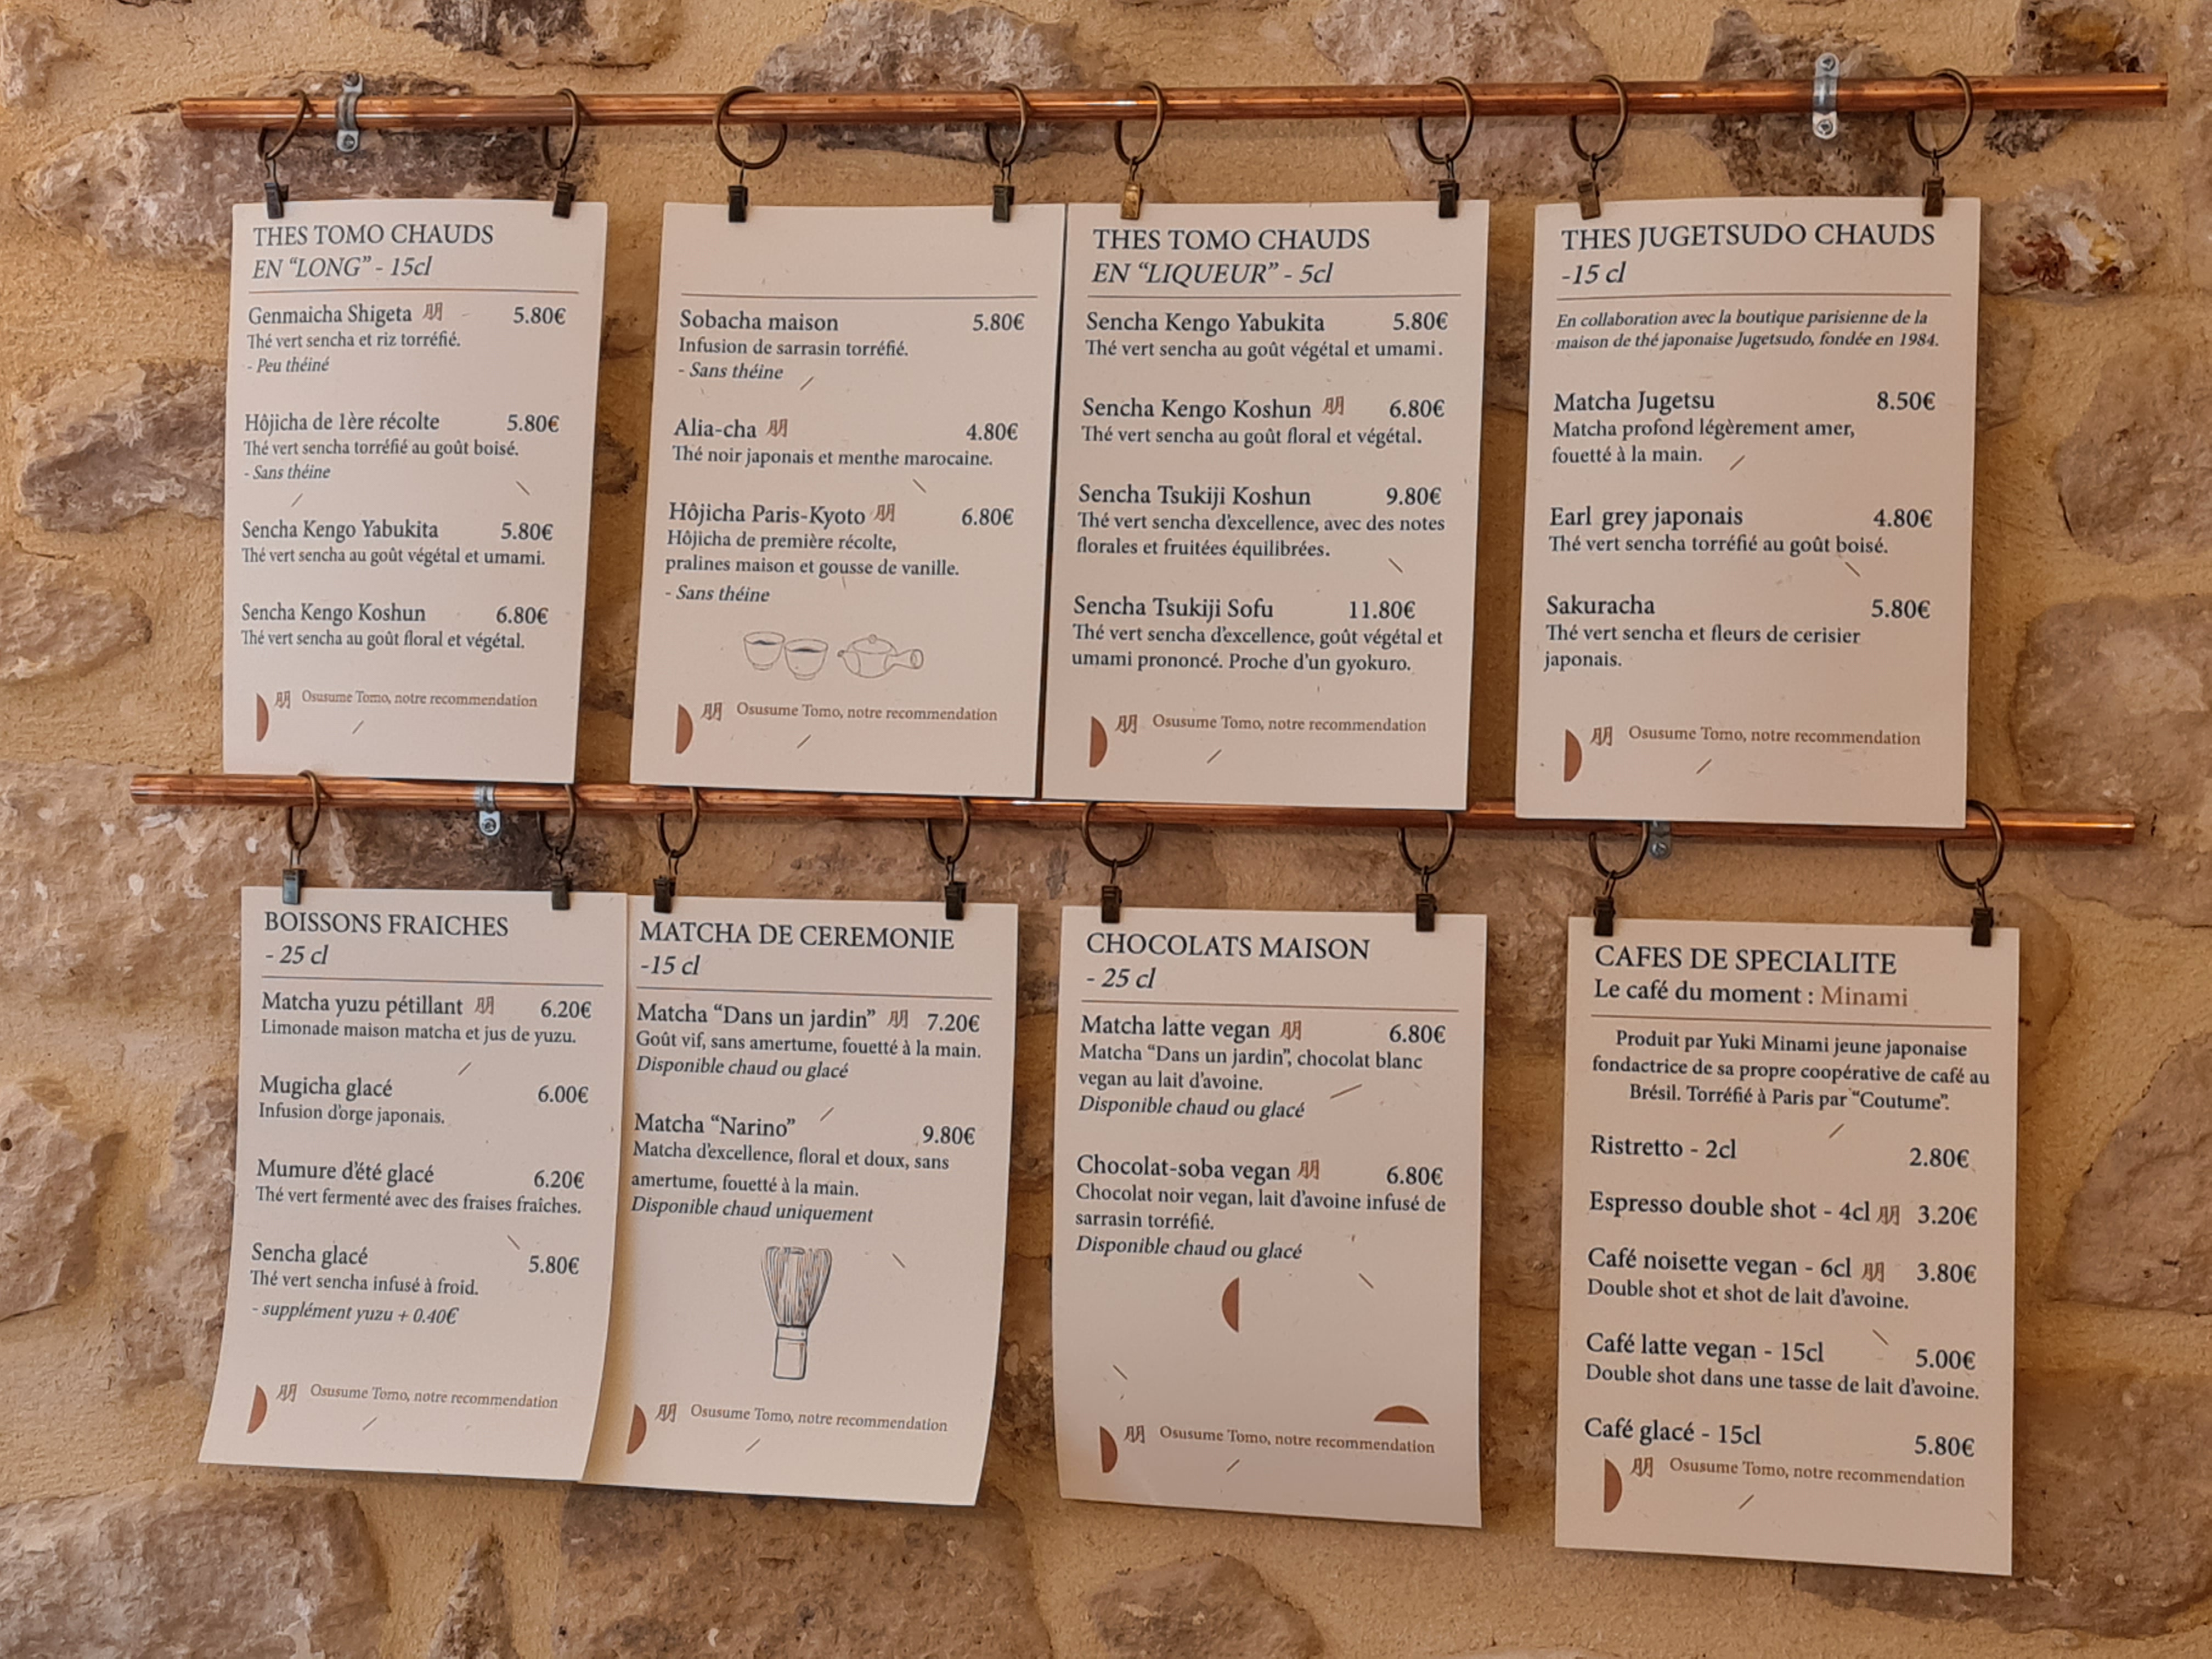 THES TOMO CHAUDS
EN “LONG” - 15cl
Genmaicha Shigeta 朋 - 5.80€
Thé vert sencha et riz torréfié.
- Peu théiné
Hôjicha de 1ère récolte 5.80€
Thé vert sencha torréfié au goût boisé.
- Sans théine
Sencha Kengo Yabukita 5.80€
Thé vert sencha au goût végétal et umami.
Sencha Kengo Koshun 6.80€
Thé vert sencha au goût floral et végétal.
朋 Osusume Tomo, notre recommendation
Sobacha maison 5.80€
Infusion de sarrasin torréfié.
- Sans théine
Alia-cha 朋 4.80€
Thé noir japonais et menthe marocaine.
Hôjicha Paris-Kyoto 朋 6.80€
Hôjicha de première récolte,
pralines maison et gousse de vanille.
- Sans théine
朋 Osusume Tomo, notre recommendation
THES TOMO CHAUDS
EN “LIQUEUR” - 5cl
Sencha Kengo Yabukita 5.80€
Thé vert sencha au goût végétal et umami.
Sencha Kengo Koshun 朋 6.80€
Thé vert sencha au goût floral et végétal.
Sencha Tsukiji Koshun 9.80€
Thé vert sencha d'excellence, avec des notes
florales et fruitées équilibrées.
Sencha Tsukiji Sofu 11.80€
Thé vert sencha d'excellence, goût végétal et
umami prononcé. Proche d'un gyokuro.
朋 Osusume Tomo, notre recommendation
THES JUGETSUDO CHAUDS
-15 cl
En collaboration avec la boutique parisienne de la
maison de thé japonaise Jugetsudo, fondée en 1984.
Matcha Jugetsu 8.50€
Matcha profond légèrement amer,
fouetté à la main.
Earl grey japonais 4.80€
Thé vert sencha torréfié au goût boisé.
Sakuracha 5.80€
Thé vert sencha et fleurs de cerisier
japonais.
朋 Osusume Tomo, notre recommendation
BOISSONS FRAICHES
- 25 cl
Matcha yuzu pétillant 朋 6.20€
Limonade maison matcha et jus de yuzu.
Mugicha glacé 6.00€
Infusion d'orge japonais.
Mumure d'été glacé 6.20€
Thé vert fermenté avec des fraises fraîches.
Sencha glacé 5.80€
Thé vert sencha infusé à froid.
- supplément yuzu + 0.40€
朋 Osusume Tomo, notre recommendation
MATCHA DE CEREMONIE
-15 cl
Matcha “Dans un jardin” 朋 7.20€
Goût vif, sans amertume, fouetté à la main.
Disponible chaud ou glacé
Matcha “Narino” 9.80€
Matcha d'excellence, floral et doux, sans
amertume, fouetté à la main.
Disponible chaud uniquement
朋 Osusume Tomo, notre recommendation
CHOCOLATS MAISON
- 25 cl
Matcha latte vegan 朋 6.80€
Matcha “Dans un jardin”, chocolat blanc
vegan au lait d'avoine.
Disponible chaud ou glacé
Chocolat-soba vegan 朋 6.80€
Chocolat noir vegan, lait d'avoine infusé de
sarrasin torréfié.
Disponible chaud ou glacé
朋 Osusume Tomo, notre recommendation
CAFES DE SPECIALITE
Le café du moment : Minami
Produit par Yuki Minami jeune japonaise
fondactrice de sa propre coopérative de café au
Brésil. Torréfié à Paris par “Coutume”.
Ristretto - 2cl 2.80€
Espresso double shot - 4cl 朋 3.20€
Café noisette vegan - 6cl 朋 3.80€
Double shot et shot de lait d'avoine.
Café latte vegan - 15cl 5.00€
Double shot dans une tasse de lait d'avoine.
Café glacé - 15cl 5.80€
朋 Osusume Tomo, notre recommendation